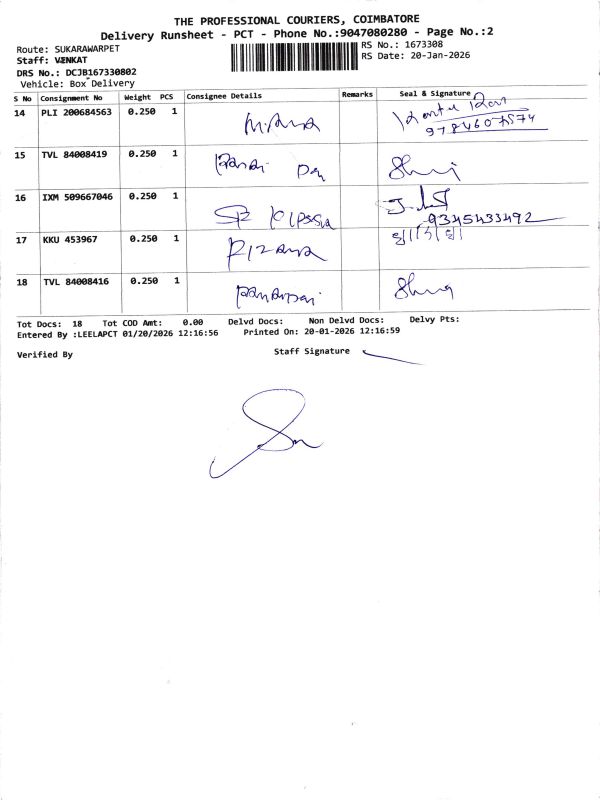 THE PROFESSIONAL COURIERS, COIMBATORE
Delivery Runsheet - PCT - Phone No.:9047080280 - Page No.:2
Route: SUKARAWARPET
RS No.: 1673308
Staff: VENKAT
RS Date: 20-Jan-2026
DRS No.: DCJB167330802
Vehicle: Box Delivery
S No Consignment No Weight PCS Consignee Details Remarks Seal & Signature
14 PLI 200684563 0.250 1
15 TVL 84008419 0.250 1
16 IXM 509667046 0.250 1
9345433492
17 KKU 453967 0.250 1
18 TVL 84008416 0.250 1
Tot Docs: 18 Tot COD Amt: 0.00 Delvd Docs: Non Delvd Docs: Delvy Pts:
Entered By :LEELAPCT 01/20/2026 12:16:56 Printed On: 20-01-2026 12:16:59
Verified By Staff Signature